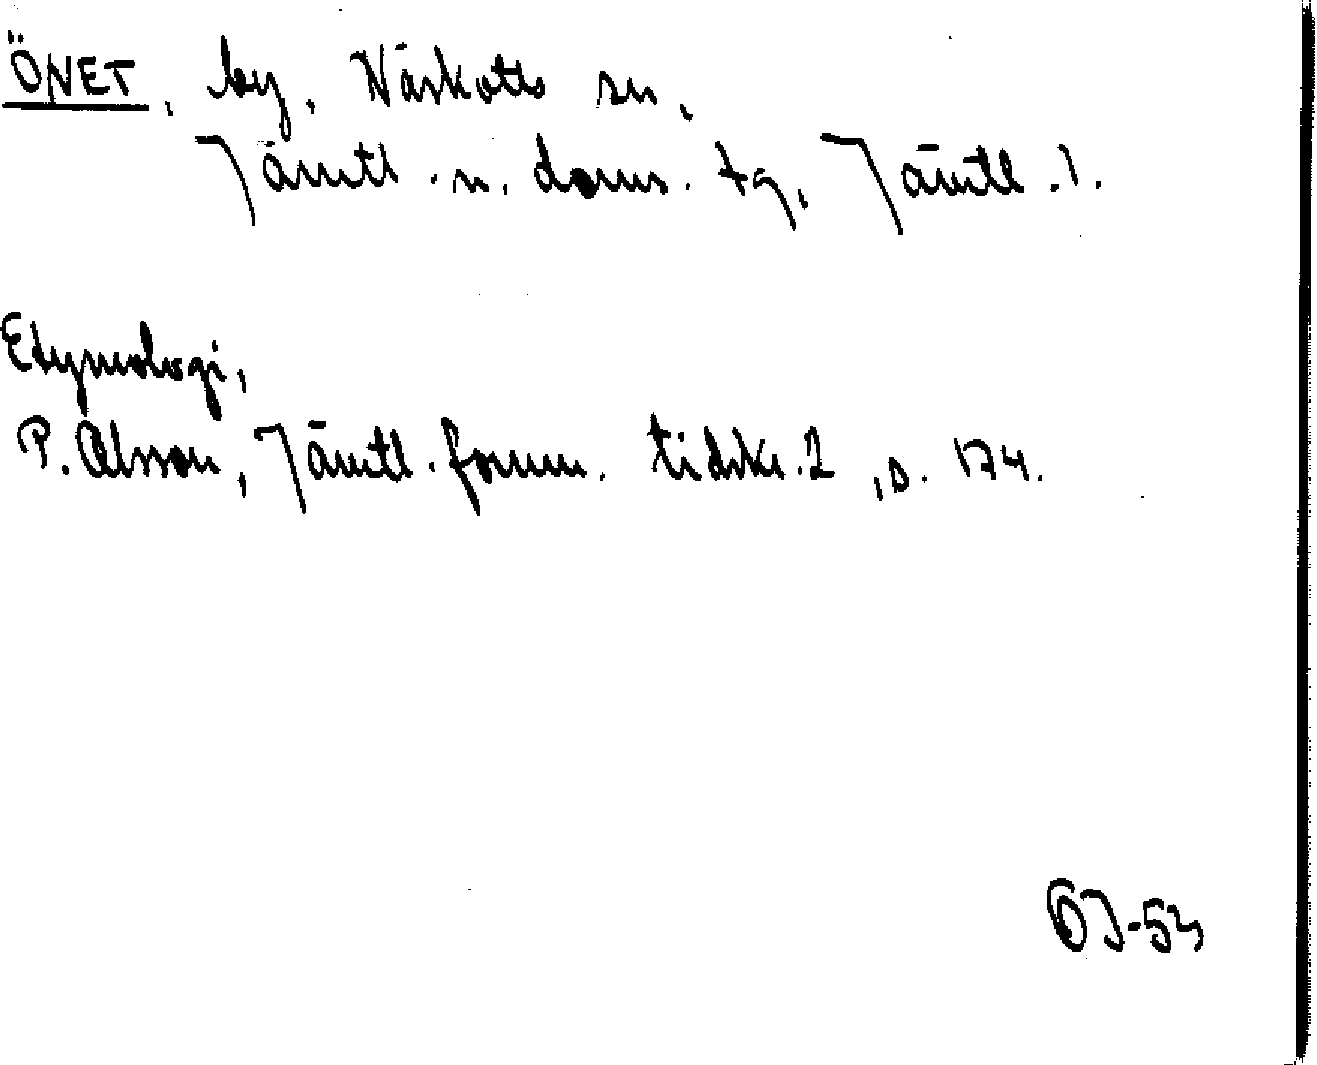 ÖNET, by, Näskotts sn,
Jämtl. n. doms. tg, Jämtl. l.
Etymologi,
P. Olsson, Jämtl. fornm. tidskr. 2, s. 174.
ÖJ-54